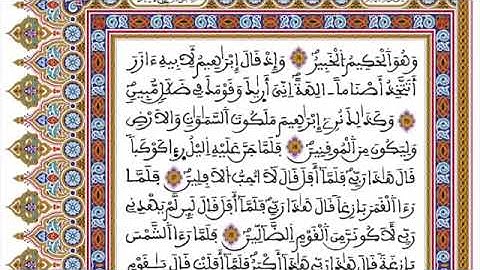 وَهُوَ اَ۬لْحَكِيمُ اُ۬لْخَبِيرُۖ وَإِذْ قَالَ إِبْرَٰهِيمُ لِأَبِيهِ ءَازَرَ
أَتَتَّخِذُ أَصْنَاماً ـالِهَةً اِنِّيَ أَر۪يٰكَ وَقَوْمَكَ فِي ضَلَٰلٖ مُّبِينٖۖ
وَكَذَٰلِكَ نُرِےٓ إِبْرَٰهِيمَ مَلَكُوتَ اَ۬لسَّمَٰوَٰتِ وَالَارْضِ
وَلِيَكُونَ مِنَ اَ۬لْمُوقِنِينَۖ فَلَمَّا جَنَّ عَلَيْهِ اِ۬ليْلُ رَء۪ا كَوْكَباٗ
قَالَ هَٰذَا رَبِّے فَلَمَّآ أَفَلَ قَالَ لَآ أُحِبُّ اُ۬لَافِلِينَۖ فَلَمَّا
رَءَا اَ۬لْقَمَرَ بَازِغاٗ قَالَ هَٰذَا رَبِّے فَلَمَّآ أَفَلَ قَالَ لَئِن لَّمْ يَهْدِنِے
رَبِّے لَأَكُونَنَّ مِنَ اَ۬لْقَوْمِ اِ۬لضَّآلِّينَۖ فَلَمَّا رَءَا اَ۬لشَّمْسَ
بَازِغَةٗ قَالَ هَٰذَا رَبِّے هَٰذَآ أَكْبَرُ فَلَمَّآ أَفَلَتْ قَالَ يَٰقَوْمِ